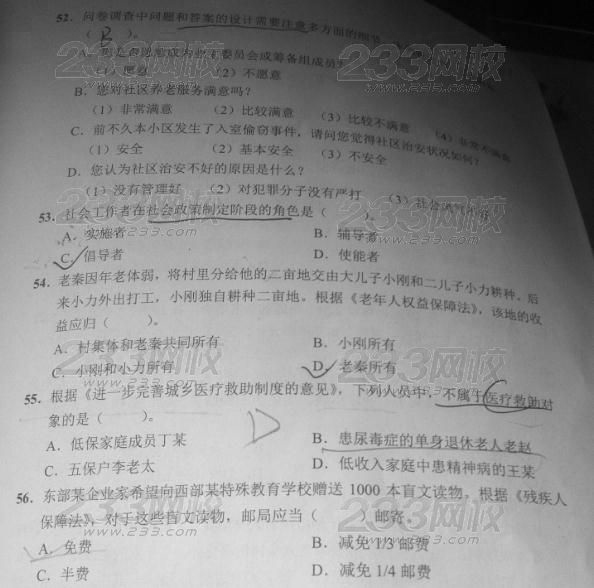 52. 问卷调查中问题和答案的设计需要注意多方面的细节
( B )。
A. 您是否愿意成为业主委员会或筹备组成员?
(1) 愿意 (2) 不愿意
B. 您对社区养老服务满意吗?
(1) 非常满意 (2) 比较满意 (3) 比较不满意 (4) 非常不满意
C. 前不久本小区发生了入室偷窃事件,请问您觉得社区治安状况如何?
(1) 安全 (2) 基本安全 (3) 不安全
D. 您认为社区治安不好的原因是什么?
(1) 没有管理好 (2) 对犯罪分子没有严打 (3) 社会风气不好
53. 社会工作者在社会政策制定阶段的角色是( )。
A. 实施者 B. 辅导者
C. 倡导者 D. 使能者
54. 老秦因年老体弱,将村里分给他的二亩地交由大儿子小刚和二儿子小力耕种。后
来小力外出打工,小刚独自耕种二亩地。根据《老年人权益保障法》,该地的收
益应归( )。
A. 村集体和老秦共同所有 B. 小刚所有
C. 小刚和小力所有 D. 老秦所有
55. 根据《进一步完善城乡医疗救助制度的意见》,下列人员中,不属于医疗救助对
象的是( )。 D
A. 低保家庭成员丁某 B. 患尿毒症的单身退休老人老赵
C. 五保户李老太 D. 低收入家庭中患精神病的王某
56. 东部某企业家希望向西部某特殊教育学校赠送 1000 本盲文读物。根据《残疾人
保障法》,对于这些盲文读物,邮局应当( )邮寄。
A. 免费 B. 减免 1/3 邮费
C. 半费 D. 减免 1/4 邮费
233网校
www.233.com